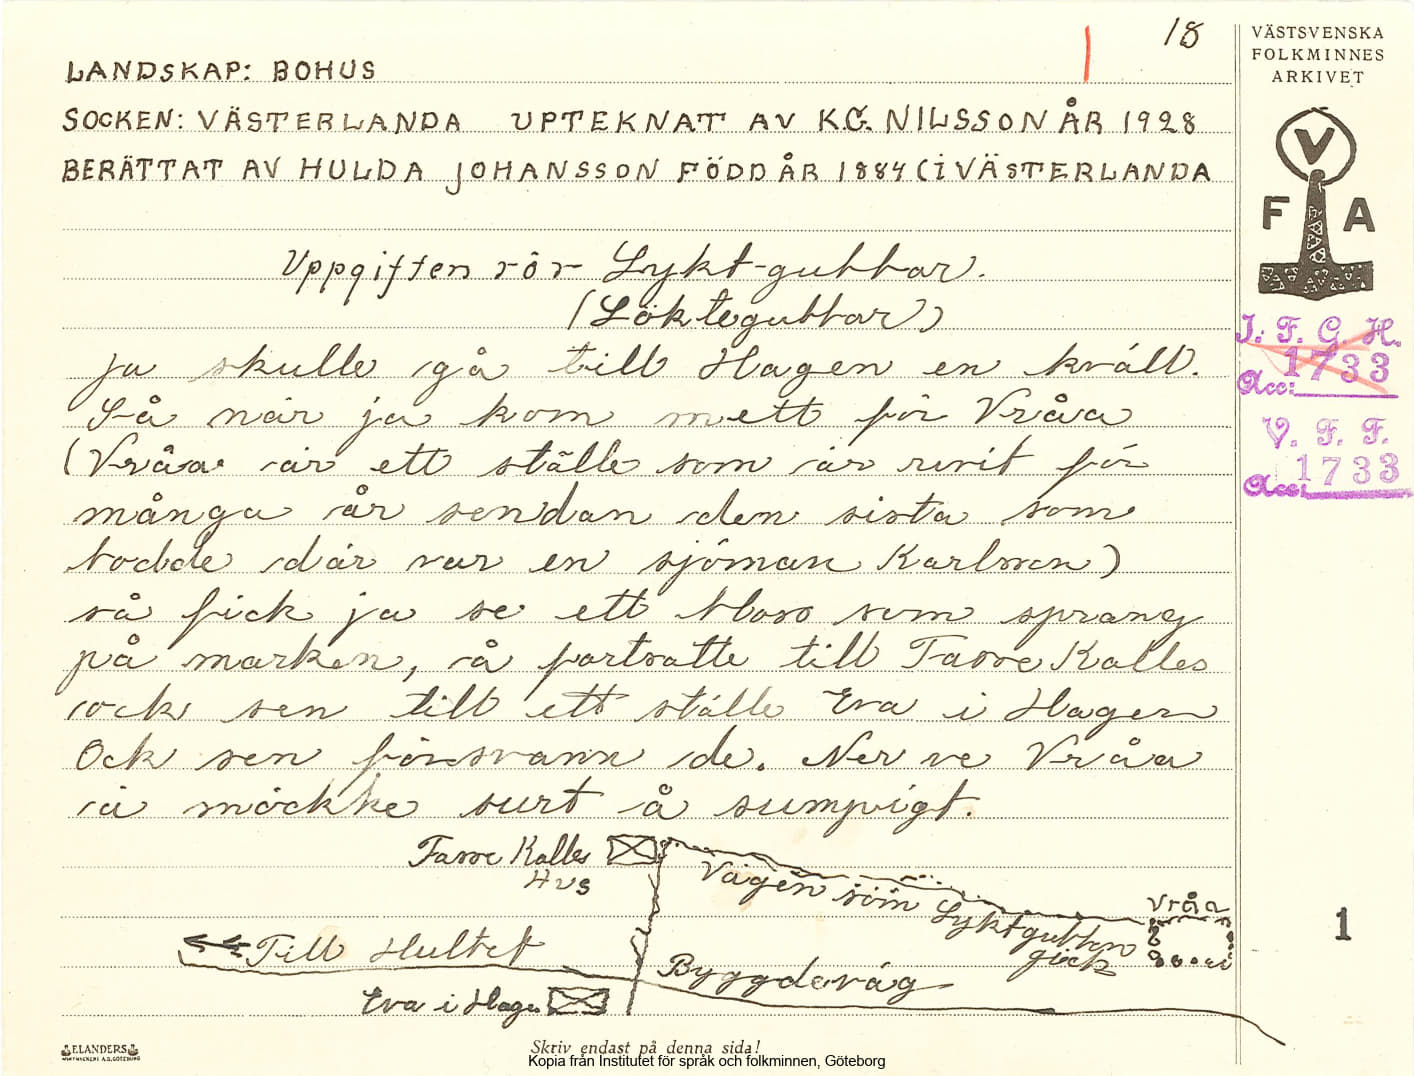 18
LANDSKAP: BOHUS
SOCKEN: VÄSTERLANDA UPTEKNAT AV K.G. NILSSON ÅR 1928
BERÄTTAT AV HULDA JOHANSSON FÖDD ÅR 1884 (i VÄSTERLANDA
Uppgiften rör Lykt-gubbar.
(Löktegubbar)
ja skulle gå till Hagen en kväll.
Så när ja kom mett för Vråa
(Vråa är ett ställe som är rivit för
många år sendan den sista som
bodde där var en sjöman Karlsson)
så fick ja se ett bloss som sprang
på marken, å fortsatte till Tasse Kalles
ock sen till ett ställe Eva i Hagen
Ock sen försvann de. Ner ve Vråa
ä möckke surt å sumpigt.
Tasse Kalles
Hus
Vägen som Lyktgubben
gick
Vråa
Till Hultet
Byggdeväg
Eva i Hage
ELANDERS
Skriv endast på denna sida!
Kopia från Institutet för språk och folkminnen, Göteborg
VÄSTSVENSKA
FOLKMINNES
ARKIVET
V
F A
I. F. G. H.
Acc: 1733
V. F. F.
Acc: 1733
1